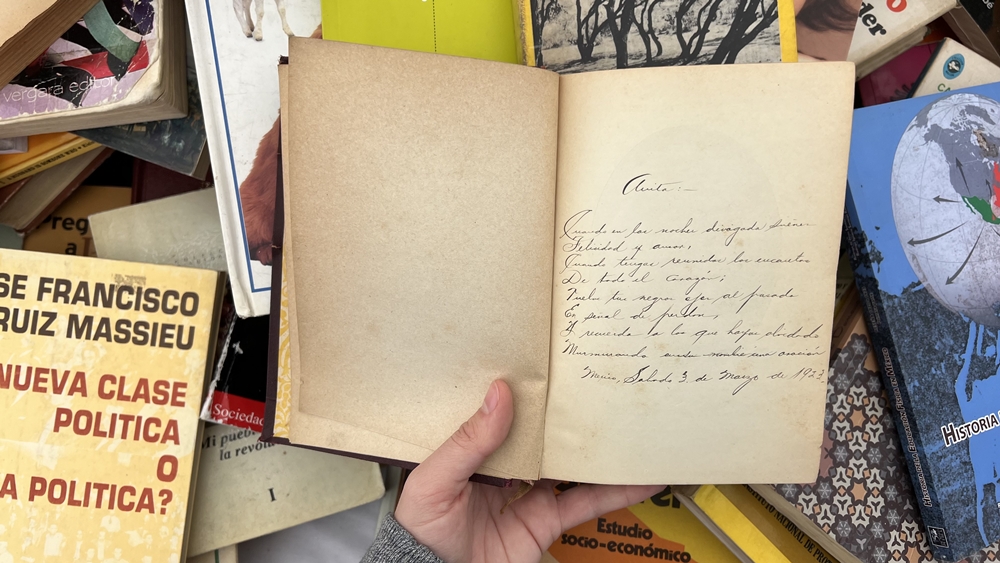 vergara editor
der
Preg
a
SE FRANCISCO
RUIZ MASSIEU
NUEVA CLASE
POLITICA
O
A POLITICA?
Sociedad
Mi pueb
la revolu
I
Anita:-
Cuando en las noches divagada sueñes
Felicidad y amor,
Cuando tengas reunidos los encantos
De todo el corazón;
Vuelve tus negros ojos al pasado
En señal de perdón,
Y recuerda a los que hayas olvidado
Murmurando nombre una oración
Mexico, Sabado 3 de Marzo de 192
Estudio
socio-económico
HISTORIA
HISTORIA DE LA EDUCACIÓN FÍSICA EN MÉXICO